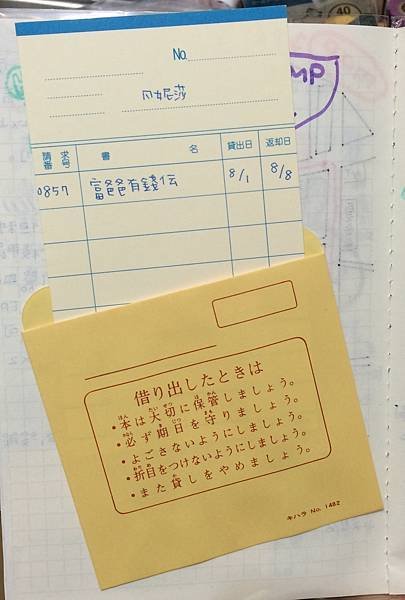 No.
凡妮莎
請求番号 書名 貸出日 返却日
0857 富爸爸有錢伝 8/1 8/8
借り出したときは
・本は大切に保管しましょう。
・必ず期日を守りましょう。
・よごさないようにしましょう。
・折目をつけないようにしましょう。
・また貸しをやめましょう。
キハラ No. 1482
MP
40